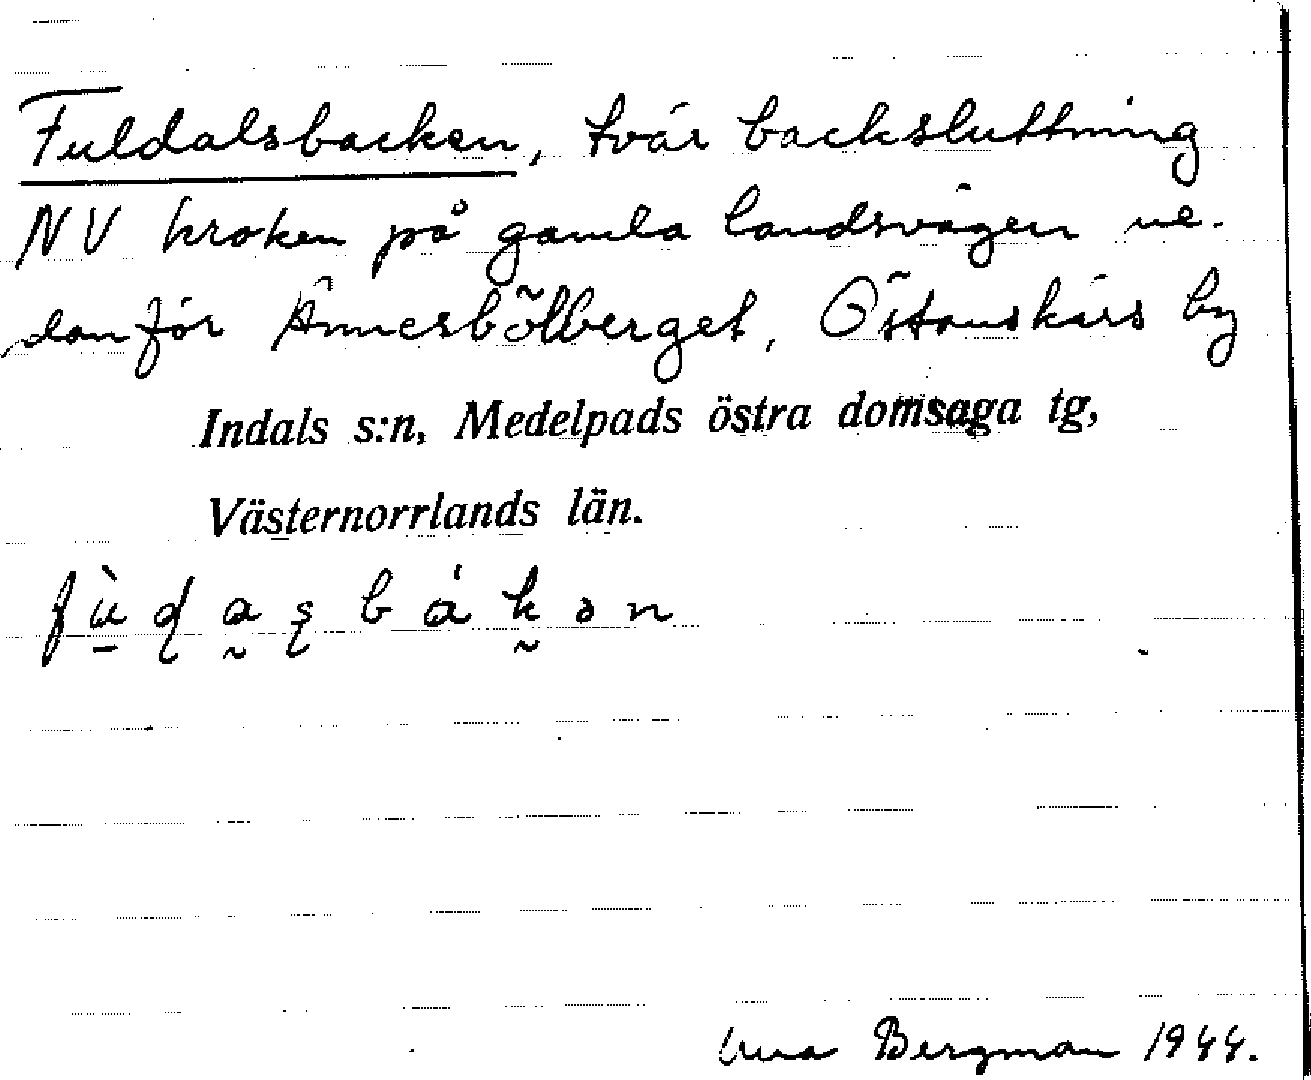 Fuldalsbacken, tvär backsluttning
NV kroken på gamla landsvägen ne-
danför Ännesbölberget, Östanskärs by
Indals s:n, Medelpads östra domsaga tg,
Västernorrlands län.
Bergman 1944.